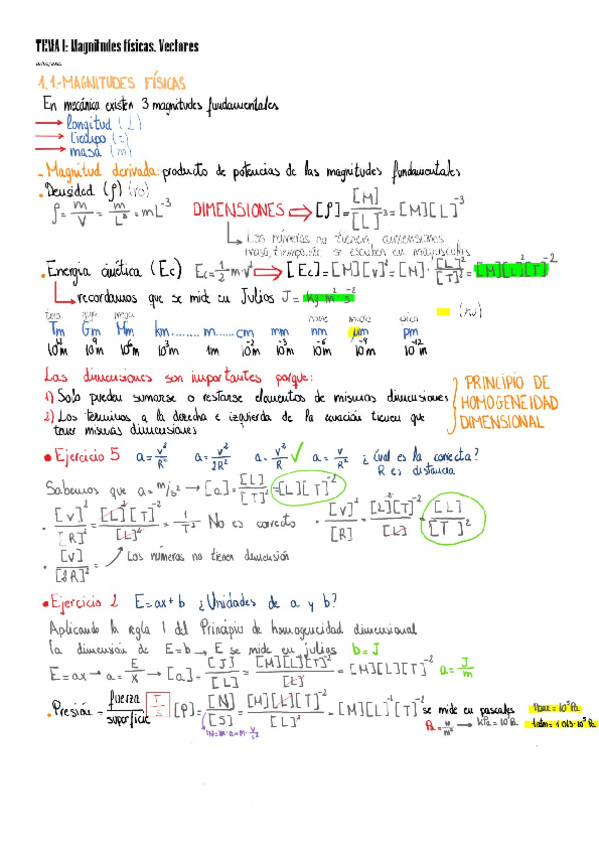 TEMA 1: Magnitudes físicas. Vectores
1.1.-MAGNITUDES FÍSICAS
En mecánica existen 3 magnitudes fundamentales
→ longitud (L)
→ tiempo (t)
→ masa (m)
- Magnitud derivada: producto de potencias de las magnitudes fundamentales
· Densidad (ρ) (ro)
ρ = m/V = m/L³ = mL⁻³ DIMENSIONES ⇒ [ρ] = [M]/[L]³ = [M][L]⁻³
Los números no tienen dimensiones
masa, tiempo, etc se escriben en mayúsculas
· Energía cinética (Ec) Ec = 1/2 · m · v² ⇒ [Ec] = [M][v]² = [M] · [L]²/[T]² = [M][L]²[T]⁻²
recordamos que se mide en Julios J = kg·m²·s⁻²
tera giga mega nano micro pico (nu)
Tm Gm Mm km........ m...... cm mm nm μm pm
10¹²m 10⁹m 10⁶m 10³m 1m 10⁻²m 10⁻³m 10⁻⁶m 10⁻⁹m 10⁻¹²m
Las dimensiones son importantes porque:
1) Solo pueden sumarse o restarse elementos de mismas dimensiones
2) Los terminos a la derecha e izquierda de la ecuación tienen que
tener mismas dimensiones
PRINCIPIO DE
HOMOGENEIDAD
DIMENSIONAL
• Ejercicio 5 a = v²/R² a = v²/2R² a = v²/R ✓ a = v/R² ¿Cual es la correcta?
R es distancia
Sabemos que a = m/s² → [a] = [L]/[T]² = [L][T]⁻²
· [v]²/[R]² = [L]²[T]⁻²/[L]² = 1/T² No es correcto · [v]²/[R] = [L]²[T]⁻²/[L] = [L]/[T]²
· [v]/[2R]² = Los números no tienen dimensión
• Ejercicio 2 E=ax+b ¿Unidades de a y b?
Aplicando la regla 1 del Principio de homogeneidad dimensional
la dimensión de E=b → E se mide en julios b=J
E=ax → a = E/x → [a] = [J]/[L] = [M][L]²[T]⁻²/[L] = [M][L][T]⁻² a = J/m
· Presión = fuerza/superficie [P] = [N]/[S] = [M][L][T]⁻²/[L]² = [M][L]⁻¹[T]⁻² se mide en pascales 1bar = 10⁵Pa
Pa = N/m² → kPa = 10³Pa 1atm = 1'013·10⁵Pa